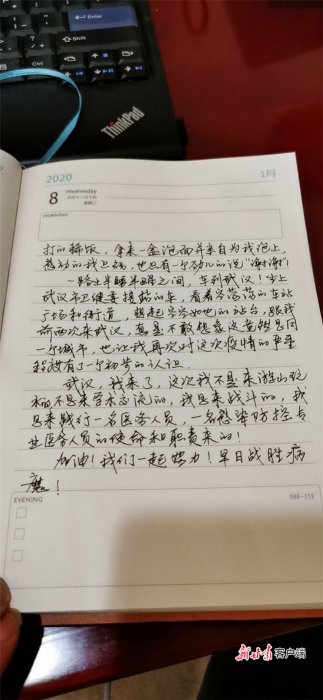 Ctrl
Shift
Enter
ThinkPad
2020
1月
8
Wednesday
MORNING
打的稀饭，拿来一盒泡面并亲自为我泡上，
感动的我
一个劲儿的说"谢谢"！
一路上半睡半醒之间，车到武汉！坐上
武汉市卫健委接站的车，看着空荡荡的车站
广场和街道，
空荡的站台，跟我
前两次来武汉，真是不敢想象这竟然是同
一个城市，也让我再次对这次疫情的严重
程度有了一个初步的认识。
武汉，我来了，这次我不是来游山玩
水的不是来学术交流的，我是来战斗的，我
是来践行一名医务人员，一名感染防控专
业医务人员的使命和职责来的！
加油！我们一起努力！早日战胜病
魔！
EVENING
008-358
新甘肃客户端